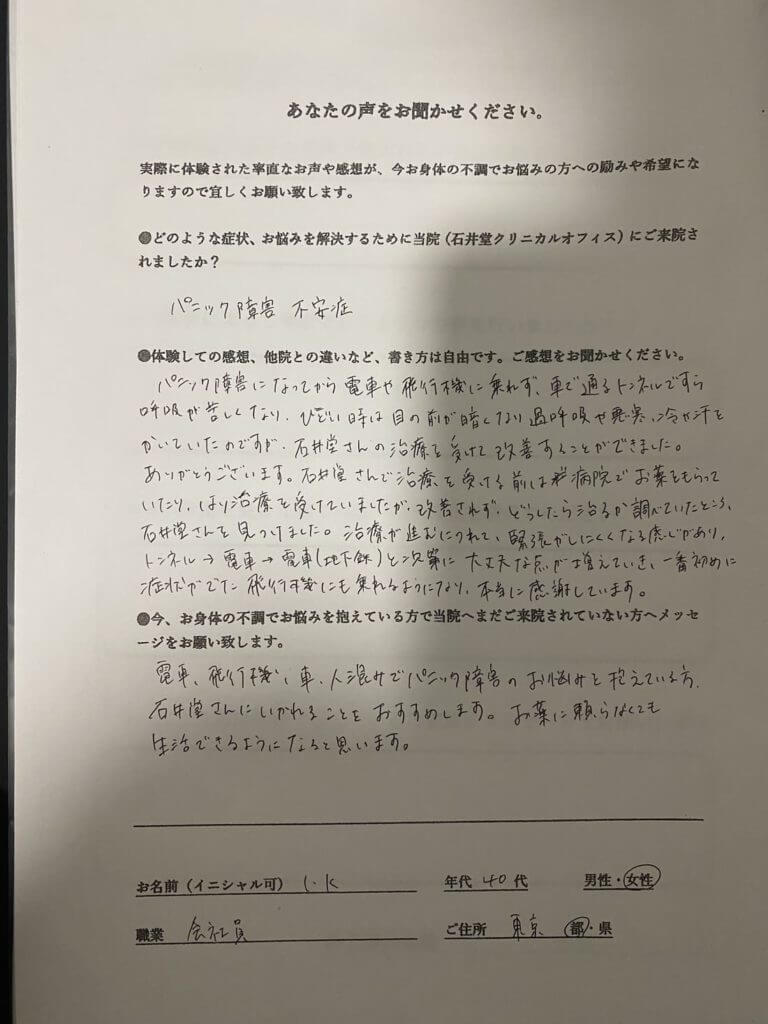 あなたの声をお聞かせください。
実際に体験された率直なお声や感想が、今お身体の不調でお悩みの方への励みや希望にな
りますので宜しくお願い致します。
●どのような症状、お悩みを解決するために当院（石井堂クリニカルオフィス）にご来院さ
れましたか？
パニック障害 不安症
●体験しての感想、他院との違いなど、書き方は自由です。ご感想をお聞かせください。
パニック障害になってから電車や飛行機に乗れず、車で通るトンネルですら
呼吸が苦しくなり、ひどい時は目の前が暗くなり過呼吸や悪寒、冷や汗を
かいていたのですが、石井堂さんの治療を受けて改善することができました。
ありがとうございます。石井堂さんで治療を受ける前は病院でお薬をもらって
いたり、はり治療を受けていましたが、改善されず、どうしたら治るか調べていたところ、
石井堂さんを見つけました。治療が進むにつれて、緊張がしにくくなる感じがあり、
トンネル→電車→電車(地下鉄)と次第に大丈夫な点が増えていき、一番初めに
症状がでた飛行機にも乗れるようになり、本当に感謝しています。
●今、お身体の不調でお悩みを抱えている方で当院へまだご来院されていない方へメッセ
ージをお願い致します。
電車、飛行機、車、人混みでパニック障害のお悩みを抱えている方、
石井堂さんにいかれることをおすすめします。お薬に頼らなくても
生活できるようになると思います。
お名前（イニシャル可） 年代 40代 男性・女性
職業 会社員 ご住所 東京 都・県